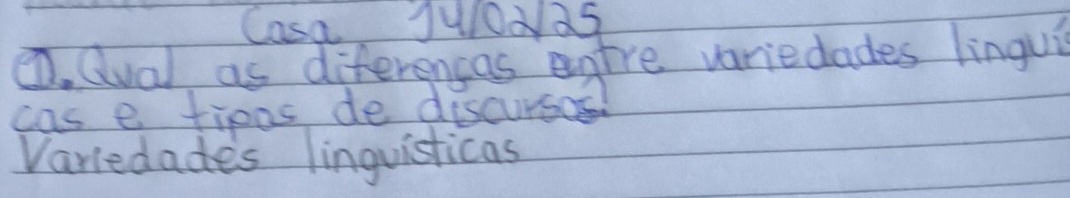 Casa 14/02/25
1. Qual as diferenças entre variedades linguís
cas e tipos de discursos?
Variedades linguísticas